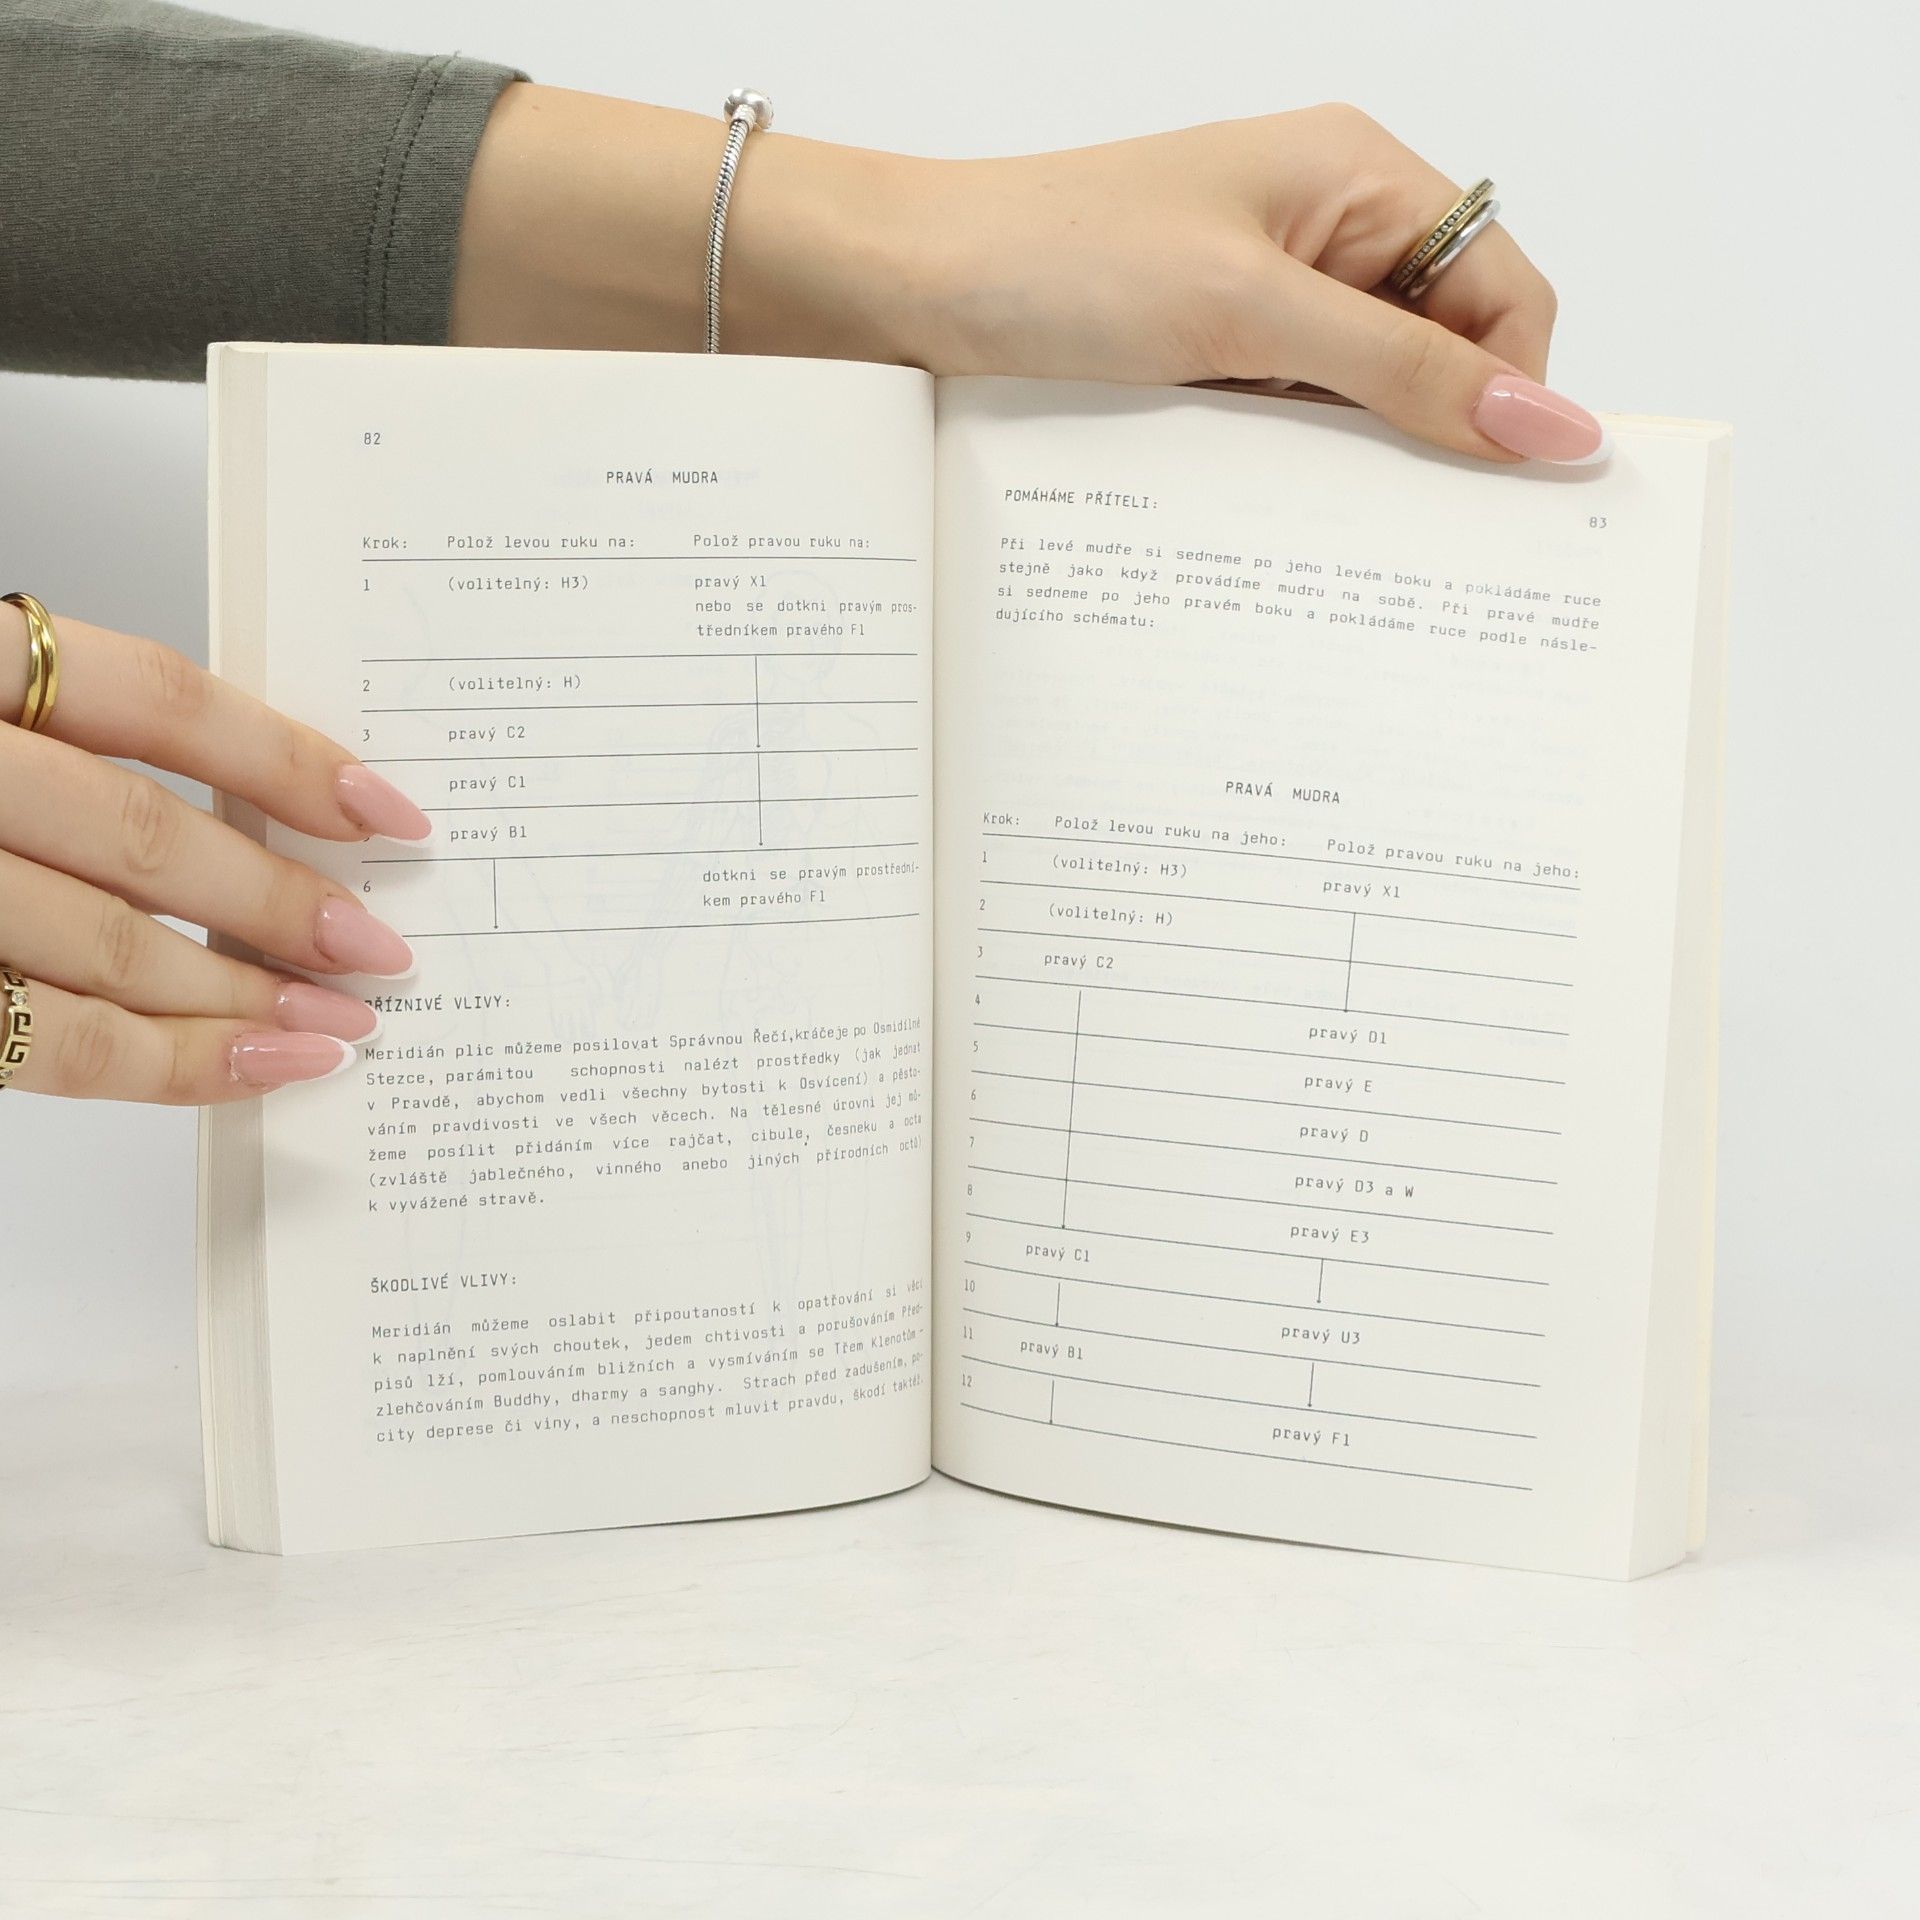 82
PRAVÁ MUDRA
Krok: Polož levou ruku na: Polož pravou ruku na:
1 (volitelný: H3) pravý X1
nebo se dotkni pravým pros-
tředníkem pravého F1
2 (volitelný: H)
3 pravý C2
pravý C1
pravý B1
6 dotkni se pravým prostřední-
kem pravého F1
PŘÍZNIVÉ VLIVY:
Meridián plic můžeme posilovat Správnou Řečí,kráčeje po Osmidílné
Stezce, parámitou schopnosti nalézt prostředky (jak jednat
v Pravdě, abychom vedli všechny bytosti k Osvícení) a pěsto-
váním pravdivosti ve všech věcech. Na tělesné úrovni jej mů-
žeme posílit přidáním více rajčat, cibule, česneku a octa
(zvláště jablečného, vinného anebo jiných přírodních octů)
k vyvážené stravě.
ŠKODLIVÉ VLIVY:
Meridián můžeme oslabit připoutaností k opatřování si věcí
k naplnění svých choutek, jedem chtivosti a porušováním Před-
pisů lží, pomlouváním bližních a vysmíváním se Třem Klenotům-
zlehčováním Buddhy, dharmy a sanghy. Strach před zadušením, po-
city deprese či viny, a neschopnost mluvit pravdu, škodí taktéž.
POMÁHÁME PŘÍTELI:
83
Při levé mudře si sedneme po jeho levém boku a pokládáme ruce
stejně jako když provádíme mudru na sobě. Při pravé mudře
si sedneme po jeho pravém boku a pokládáme ruce podle násle-
dujícího schématu:
PRAVÁ MUDRA
Krok: Polož levou ruku na jeho: Polož pravou ruku na jeho:
1 (volitelný: H3) pravý X1
2 (volitelný: H)
3 pravý C2
4 pravý D1
5 pravý E
6 pravý D
7 pravý D3 a W
8 pravý E3
9 pravý C1
10 pravý U3
11 pravý B1
12 pravý F1